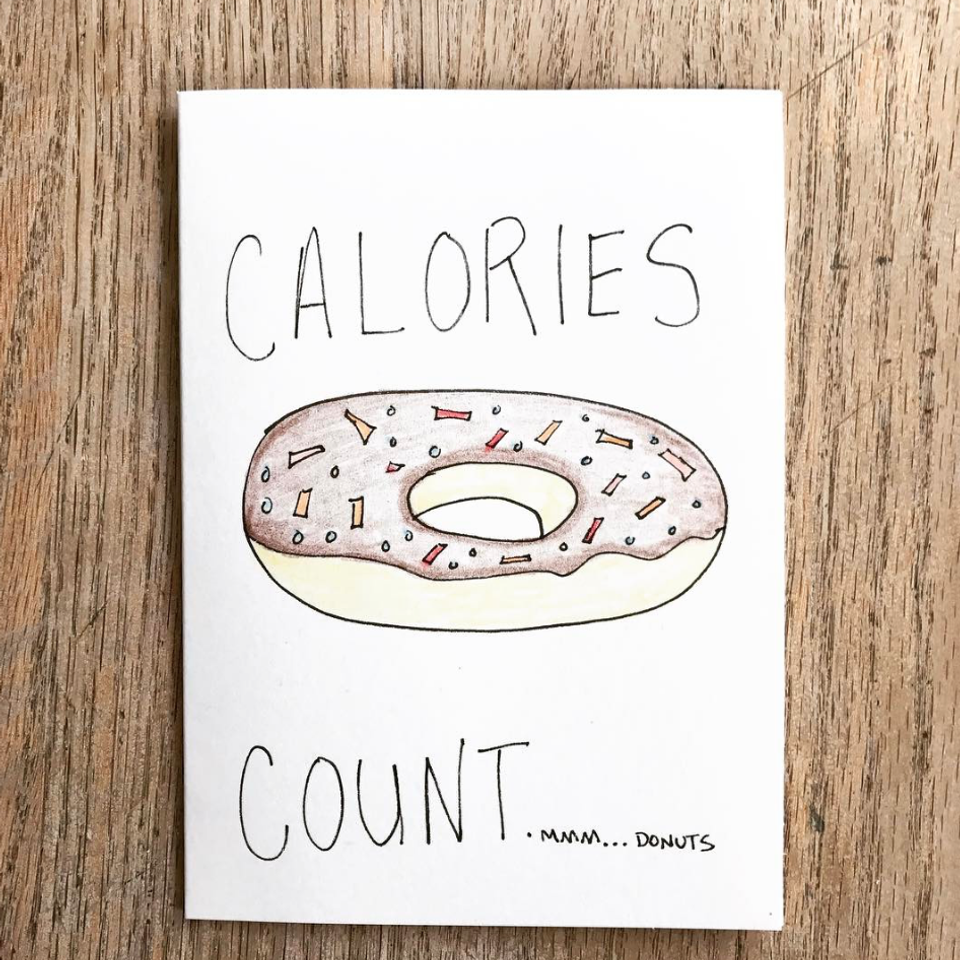 CALORIES
COUNT. MMM... DONUTS